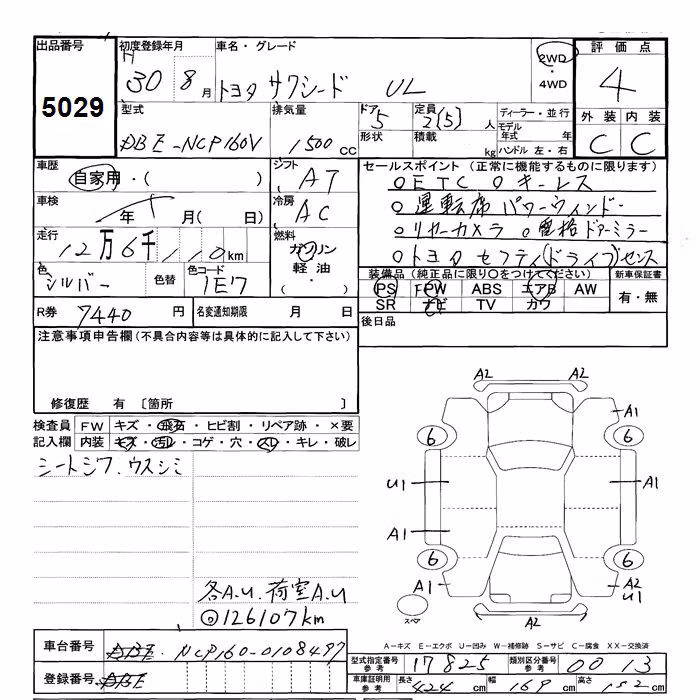 出品番号 初度登録年月 車名・グレード 2WD・4WD 評価点
5029 H 30 8月 トヨタ サクシード UL 4
型式 DBE-NCP160V 排気量 1500cc ドア 5 定員 2(5)人 ディーラー・並行
形状 積載 kg モデル年式 年式
ハンドル 左・右 外装 内装 C C
車歴 自家用・( ) シフト AT セールスポイント (正常に機能するものに限ります)
車検 年 月(日) 冷房 AC
○ETC ○キーレス
○運転席 パワーウィンドー
○リヤーカメラ ○電格ドアーミラー
○トヨタ セフティ(ドライブ)センス
走行 12万6千110km 燃料 ガソリン 軽油・
色 シルバー 色替 色コード 1E7
装備品 (純正品に限り○をつけてください) 新車保証書
PS PW ABS エアB AW 有・無
SR ナビ TV カワ
R券 7440円 名変通知期限 月 日 後日品
注意事項申告欄 (不具合内容等は具体的に記入して下さい)
修復歴 有 〔箇所 〕
検査員 FW キズ・飛石・ヒビ割・リペア跡・×要
記入欄 内装 キズ・汚レ・コゲ・穴・スレ・キレ・破レ
シートシワ.ウスシミ
各A.U.荷室A.U
◎126107km
A2 A2
A1
6 6
U1 A1
A1
6 6
A1 A2 U1
スペア A2
A-キズ E-エクボ U-凹み W-補修跡 S-サビ C-腐食 XX-交換済
車台番号 DBE-NCP160-0108497 型式指定番号 参考 17825 類別区分番号 参考 0013
登録番号 DBE 車庫証明用 参考 長さ 424cm 幅 169cm 高さ 152cm